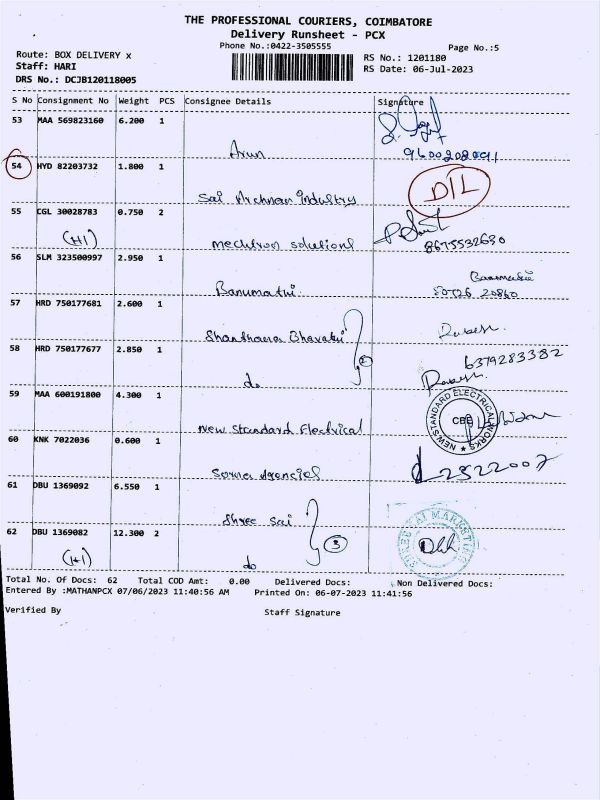 THE PROFESSIONAL COURIERS, COIMBATORE
Delivery Runsheet - PCX
Phone No.:0422-3505555
Page No.:5
Route: BOX DELIVERY x
Staff: HARI
DRS No.: DCJB120118005
RS No.: 1201180
RS Date: 06-Jul-2023
S No Consignment No Weight PCS Consignee Details Signature
53 MAA 569823160 6.200 1
Arun
9600208091
54 HYD 82203732 1.800 1
Sai Archnan industry D/L
55 CGL 30028783 0.750 2
(H1) mechtron solutions 8675532630
56 SLM 323500997 2.950 1
Banumathi
57 HRD 750177681 2.600 1
Shanthana Bhavabi
58 HRD 750177677 2.850 1
6379283382
do
59 MAA 600191800 4.300 1
New Standard Electrical
NEW STANDARD ELECTRICAL WORKS
CBE
60 KNK 7022036 0.600 1
Agencies 2522007
61 DBU 1369092 6.550 1
Shree Sai
62 DBU 1369082 12.300 2
(H1) do 3
SHREE SAI MARKETING
Total No. Of Docs: 62 Total COD Amt: 0.00 Delivered Docs: Non Delivered Docs:
Entered By :MATHANPCX 07/06/2023 11:40:56 AM Printed On: 06-07-2023 11:41:56
Verified By Staff Signature